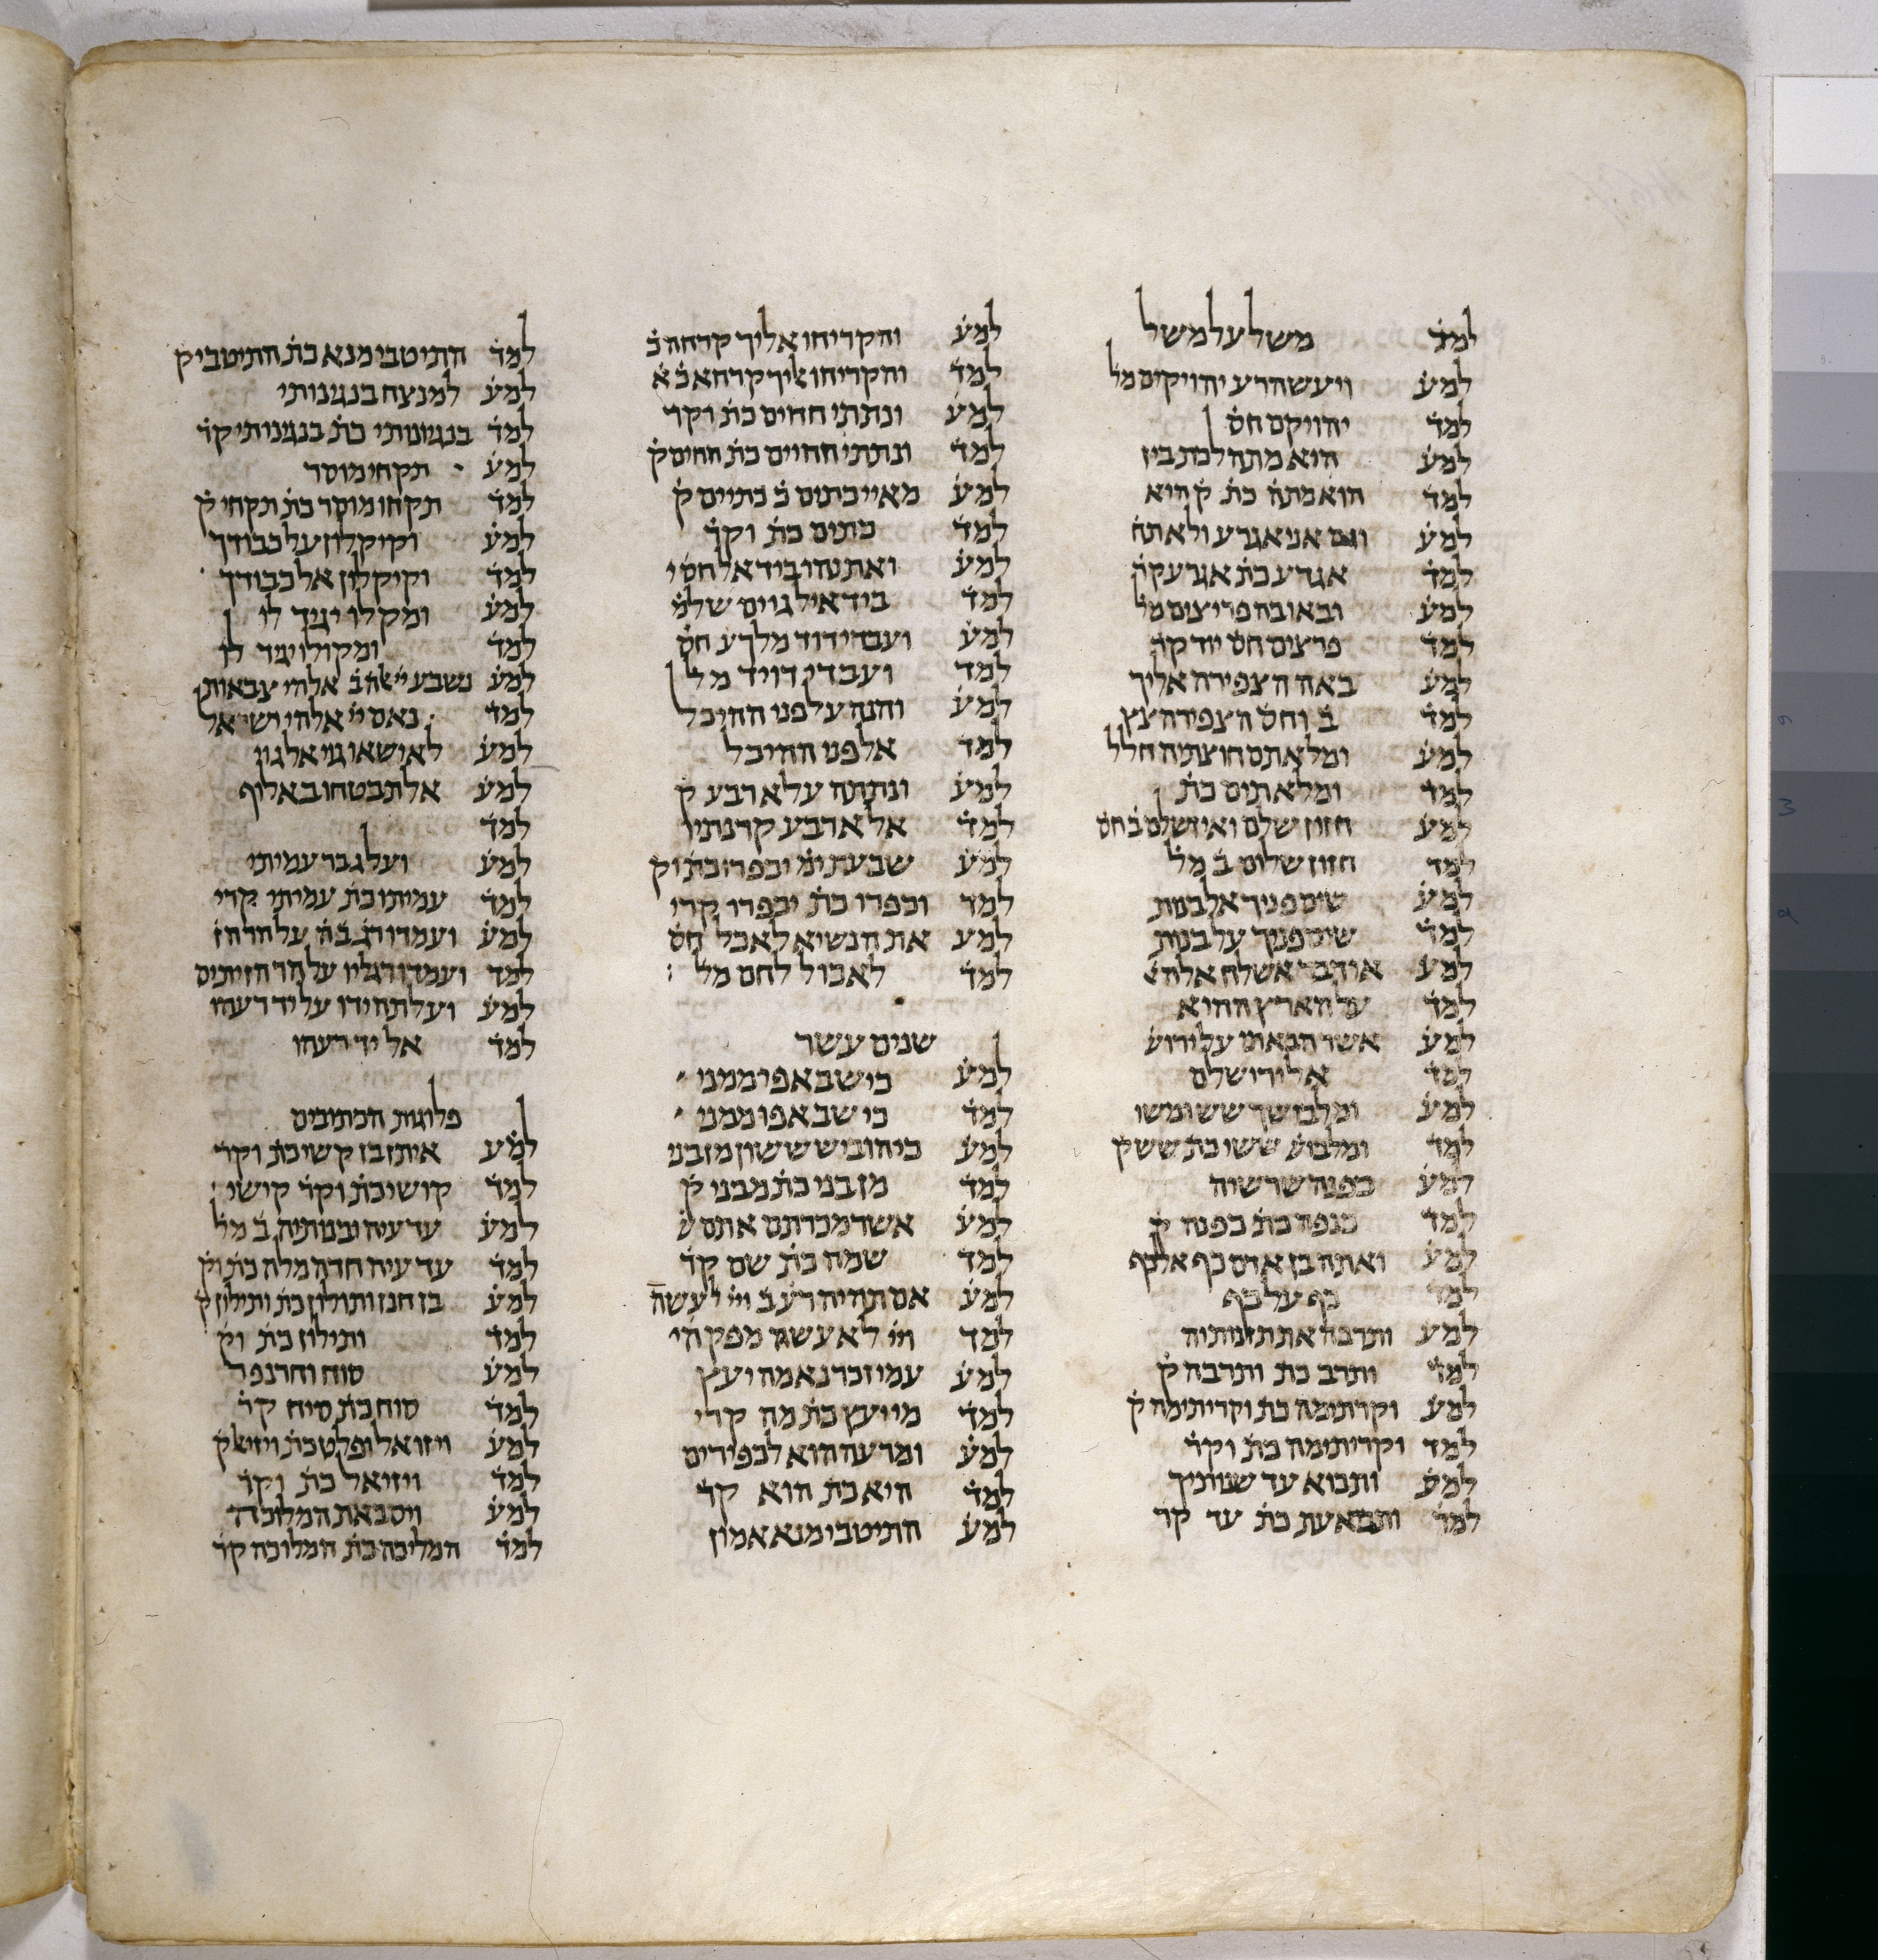 למד משל על משל
למע ויעש הרע יהויקים מל
למד יהויקם חס
למע הוא מתה לכת ביז
למד הוא כתה כת ק היא
למע וגם אני אגרע ולא תח
למד אגדע כת אגרע קר
למע ובאו בה פריצים מל
למד פרצים חס יוד קר
למע באה הצפירה אליך
למד ב וחס הצפירה צץ
למע ומלאתם חוצתיה חלל
למד ומלאתים כת
למע חזון שלם ואין שלם ב חס
למד חזון שלום ב מל
למע שים פניך אל בנות
למד שים פניך על בנות
למע או דבר אשלח אל ה
למד על הארץ ההיא
למע אשר הבאתי על ירוש
למד אל ירושלם
למע ומלבושך ששי ומשי
למד ומלבוש ששי כת שש ק
למע כפנה שרשיה
למד כנפה כת כפנה ק
למע ואתה בן אדם כף אל כף
למד כף על כף
למע ותרבה את תזנותיה
למד ותרב כת ותרבה ק
למע וקרתימה כת וקריתימה ק
למד וקריתימה כת וקר
למע ותבוא עד שנותיך
למד ותבוא עת כת עד קר
למע והקריחו אליך קרחה ב
למד והקריחו אליך קרחא ב א
למע ונתתי חחים כת וקר
למד ונתתי חחיים כת חחים ק
למע מאיי כתים ב כתיים ק
למד כתים כת וקר
למע ואתנהו ביד אל חס י
למד ביד איל גוים שלמ
למע ועבדי דוד מלך ע חס
למד ועבדי דויד מל
למע והנה על פני ההיכל
למד אל פני ההיכל
למע ונתתה על ארבע ק
למד אל ארבע קרנתיו
למע שבעת ימים יכפרו כת וק
למד וכפרו כת יכפרו קרי
למע את הנשיא לאכל חס
למד לאכול לחם מל :
שנים עשר
למע כי שב אפי ממני
למד כי שב אפו ממני
למע כי הוביש ששון מן בני
למד מן בני כת מבני ק
למע אשר מכרתם אתם ש
למד שמה כת שם קר
למע אם תהיה רעה ב ויי לא עשה
למד ויי לא עשה מפק היי
למע עמי זכר נא מה יעץ
למד מי יעץ כת מה קרי
למע ומרעה הוא לכפירים
למד היא כת הוא קר
למע התיטבי מנא אמון
למד התיטבי מנא כת התיטבי ק
למע למנצח בנגינותי
למד בנגינותי כת בנגינותי קר
למע תקחי מוסר
למד תקחו מוסר כת תקחי ק
למע וקיקלון על כבודך
למד וקיקלון אל כבודך
למע ומקלו יגיד לו
למד ומקולו יגיד לו
למע נשבע יי אלהי צבאות
למד נאם יי אלהי ישראל
למע לא ישאו גוי אל גוי
למע אל תבטחו באליף
למד
למע ועל גבר עמיתי
למד עמיתו כת עמיתי קרי
למע ועמדו רג ב ה על הר הז
למד ועמדו רגליו על הר הזיתים
למע ועלתה ידו על יד רעהו
למד אל יד רעהו
פלוגות הכתובים
למע איתן בן קשי כת וקר
למד קושי כת וקר קישי :
למע עד עיה ובנותיה ב מל
למד עד עיה חדה מלה כת וק
למע בן חנן ותולון כת ותילון ק
למד ותילון כת וק
למע סוח וחרנפר
למד סוח כת סיח קר
למע ויזואל ופלט כת ויזיאל ק
למד ויזיאל כת וקר
למע ויסב את המלוכה
למד המליכה כת המלוכה קר